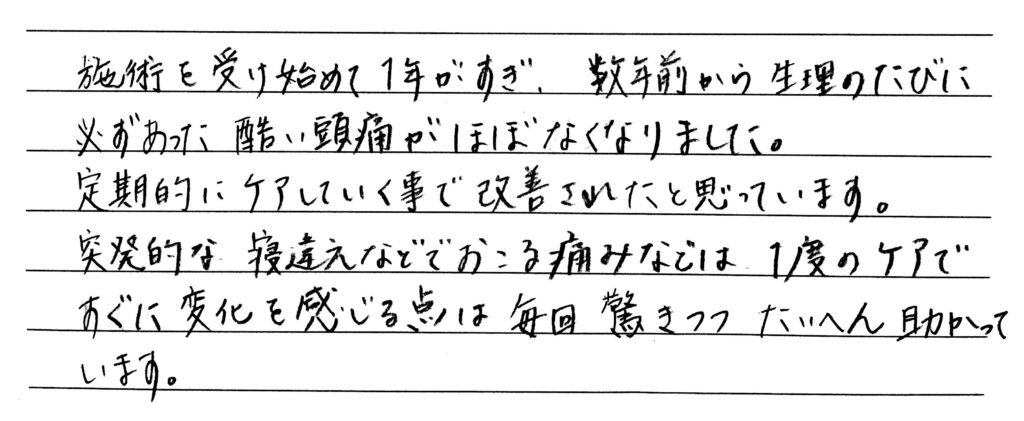 施術を受け始めて1年がすぎ、数年前から生理のたびに
必ずあった酷い頭痛がほぼなくなりました。
定期的にケアしていく事で改善されたと思っています。
突発的な寝違えなどでおこる痛みなどは1度のケアで
すぐに変化を感じる点は毎回驚きつつたいへん助かって
います。